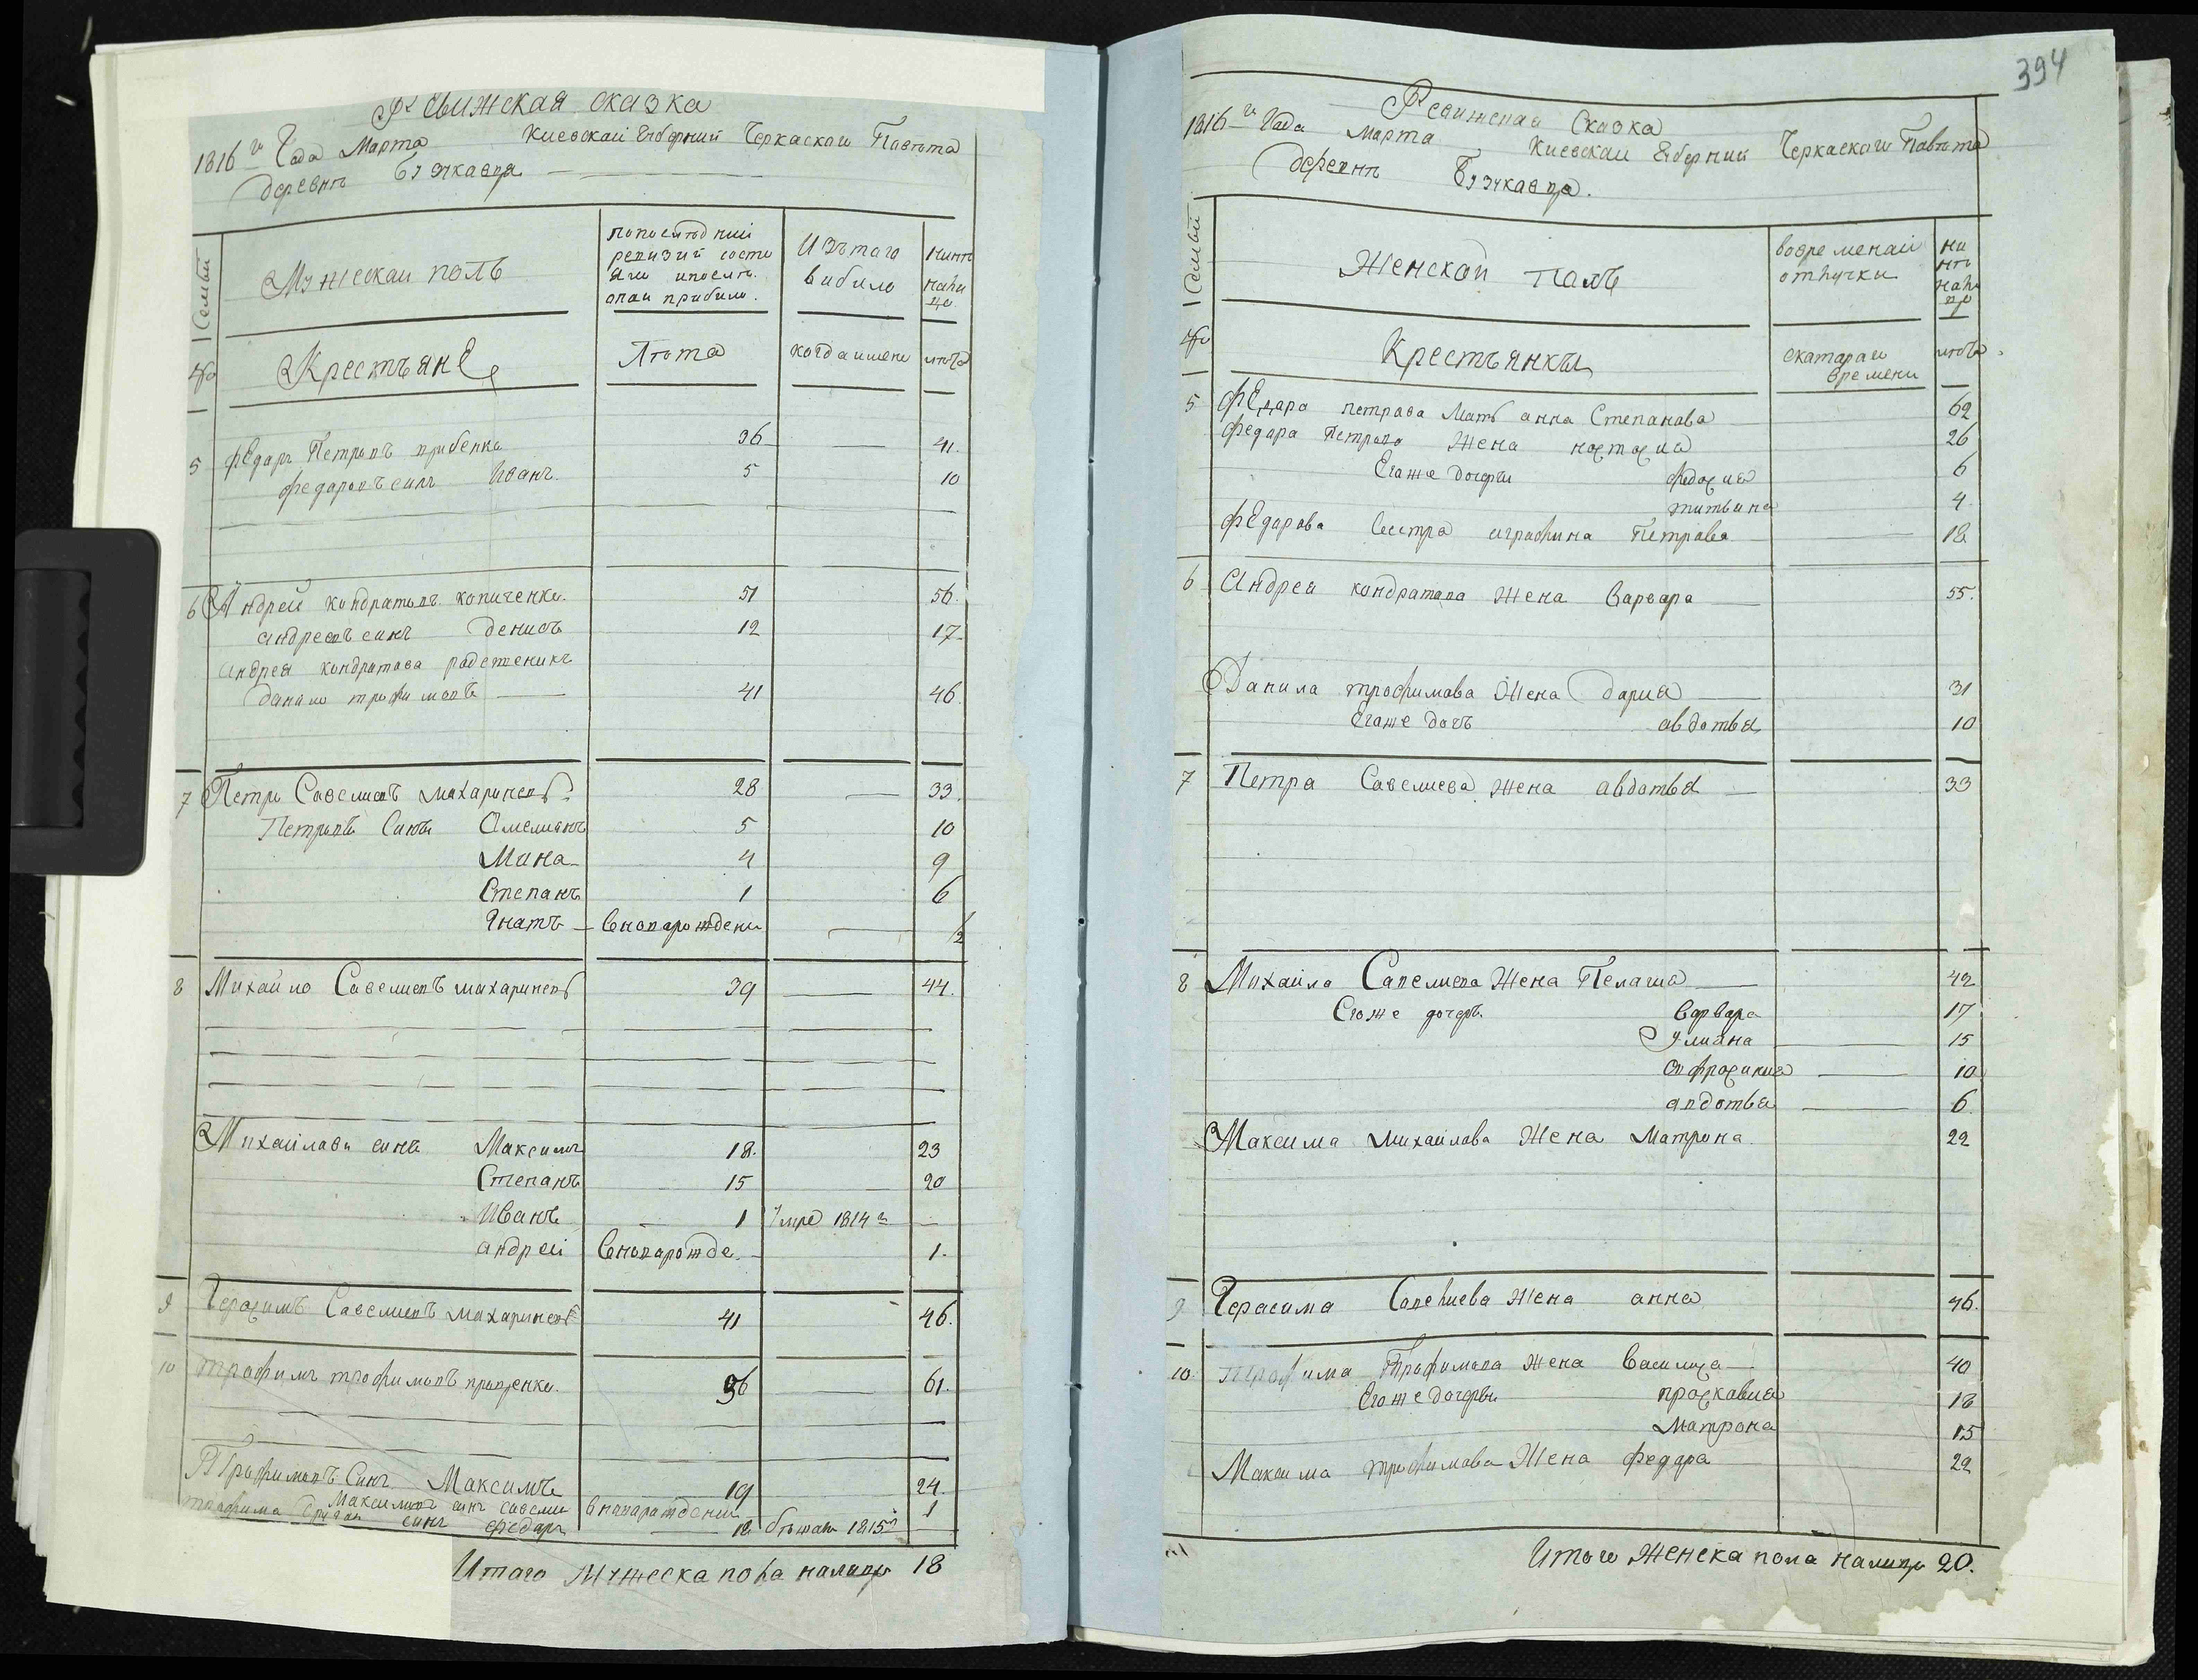 Ревижская сказка
1816 го Года Марта Киевскай Губерний Черкаскои Павѣта
деревнѣ
Семьи
Мужескаи полъ
попослѣдний ревизий состо яли ипослѣ онаи прибило.
Изътаго вибило
Нинѣ
№
Крестьяне
Лѣта
когдаимено
лѣта
5 федаръ Петровъ 36 41.
федаровъ синъ Иванъ. 5 10
6 Андреи кондратовъ копиченко. 51 56.
андреевъ синъ денисъ 12 17.
андрея кондратова
данило трофимовъ 41 46.
7 Петръ Савелиевъ махаринскъ 28 33.
Петровъ Сины Омелиянъ 5 10
Мина 4 9
Степанъ 1 6
Гнатъ вноварождени 1/2
8 Михаило Савелиевъ махаринскъ 39 44.
Михаилови сини Максимъ 18. 23
Степанъ 15 20
Иванъ 1 умре 1814 г
андреи вноварожде. 1.
9 Герасимъ Савелиевъ махаринскъ 41 46.
10 трофимъ трофимовъ 56 61.
Трофимовъ Синъ Максимъ 19 24.
Максимовъ синъ савели вноварождени 1
трофима другаи синъ федаръ 12 бѣжалъ 1815 г
Итаго Мужеска пола налицо 18
394
Ревижская Сказка
1816 го Года марта Киевскаи Губернии Черкаскаи Павѣта
деревнѣ
Семьи
Женскои палъ
вовременаи отлучки
ни нѣ
№
Крестьянки
скатараи времени
лѣта
5 федара петрова Мать анна Степанова 62
федара Петрова Жена настасия 26
Егоже дочери федосия 6
татьяна 4
федарова Сестра аграфина Петрова 18
6 Андрея кондратова жена Варвара 55.
Данила трофимова жена Дария 31
Егоже дочъ авдотья 10
7 Петра Савелиева жена авдотья 33
8 Михаила Савелиева Жена Пелагия 42
Егоже дочеръ Варвара 17
Улиана 15
афросиния 10
авдотья 6
Максима михаилова Жена Матрона. 22
9 Герасима Савелиева жена анна 46.
10. Трофима Трофимова жена Василиса 40
Егоже дочеры проскавия 18
матрона 15
Максима трофимова Жена федора 22
Итого Женска пола налицо 20.